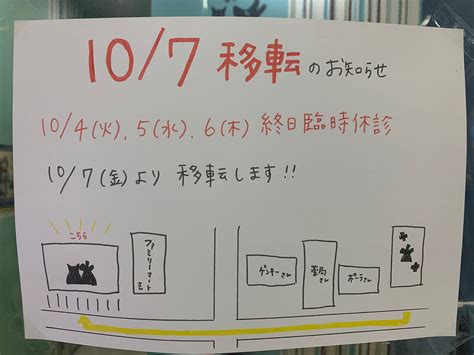 10/7 移転のお知らせ
10/4(火)、5(水)、6(木) 終日臨時休診
10/7(金)より 移転します!!
こちら
ファミリーマート
ゲンキーさん
薬局さん
ポーラさん